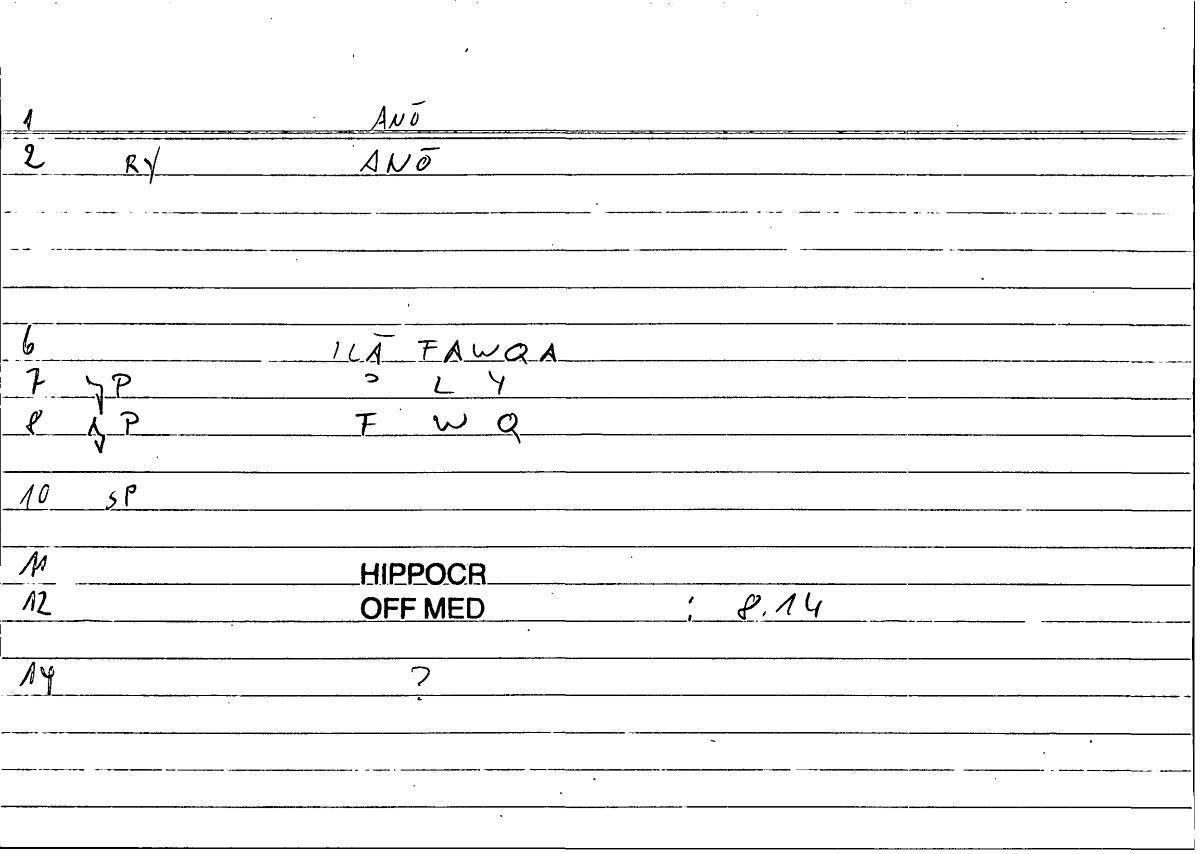 1 ANŌ
2 RY ANŌ
6 ILĀ FAWQA
7 P ʾ L Y
8 P F W Q
10 SP
11 HIPPOCR
12 OFF MED : 8.14
14 ?